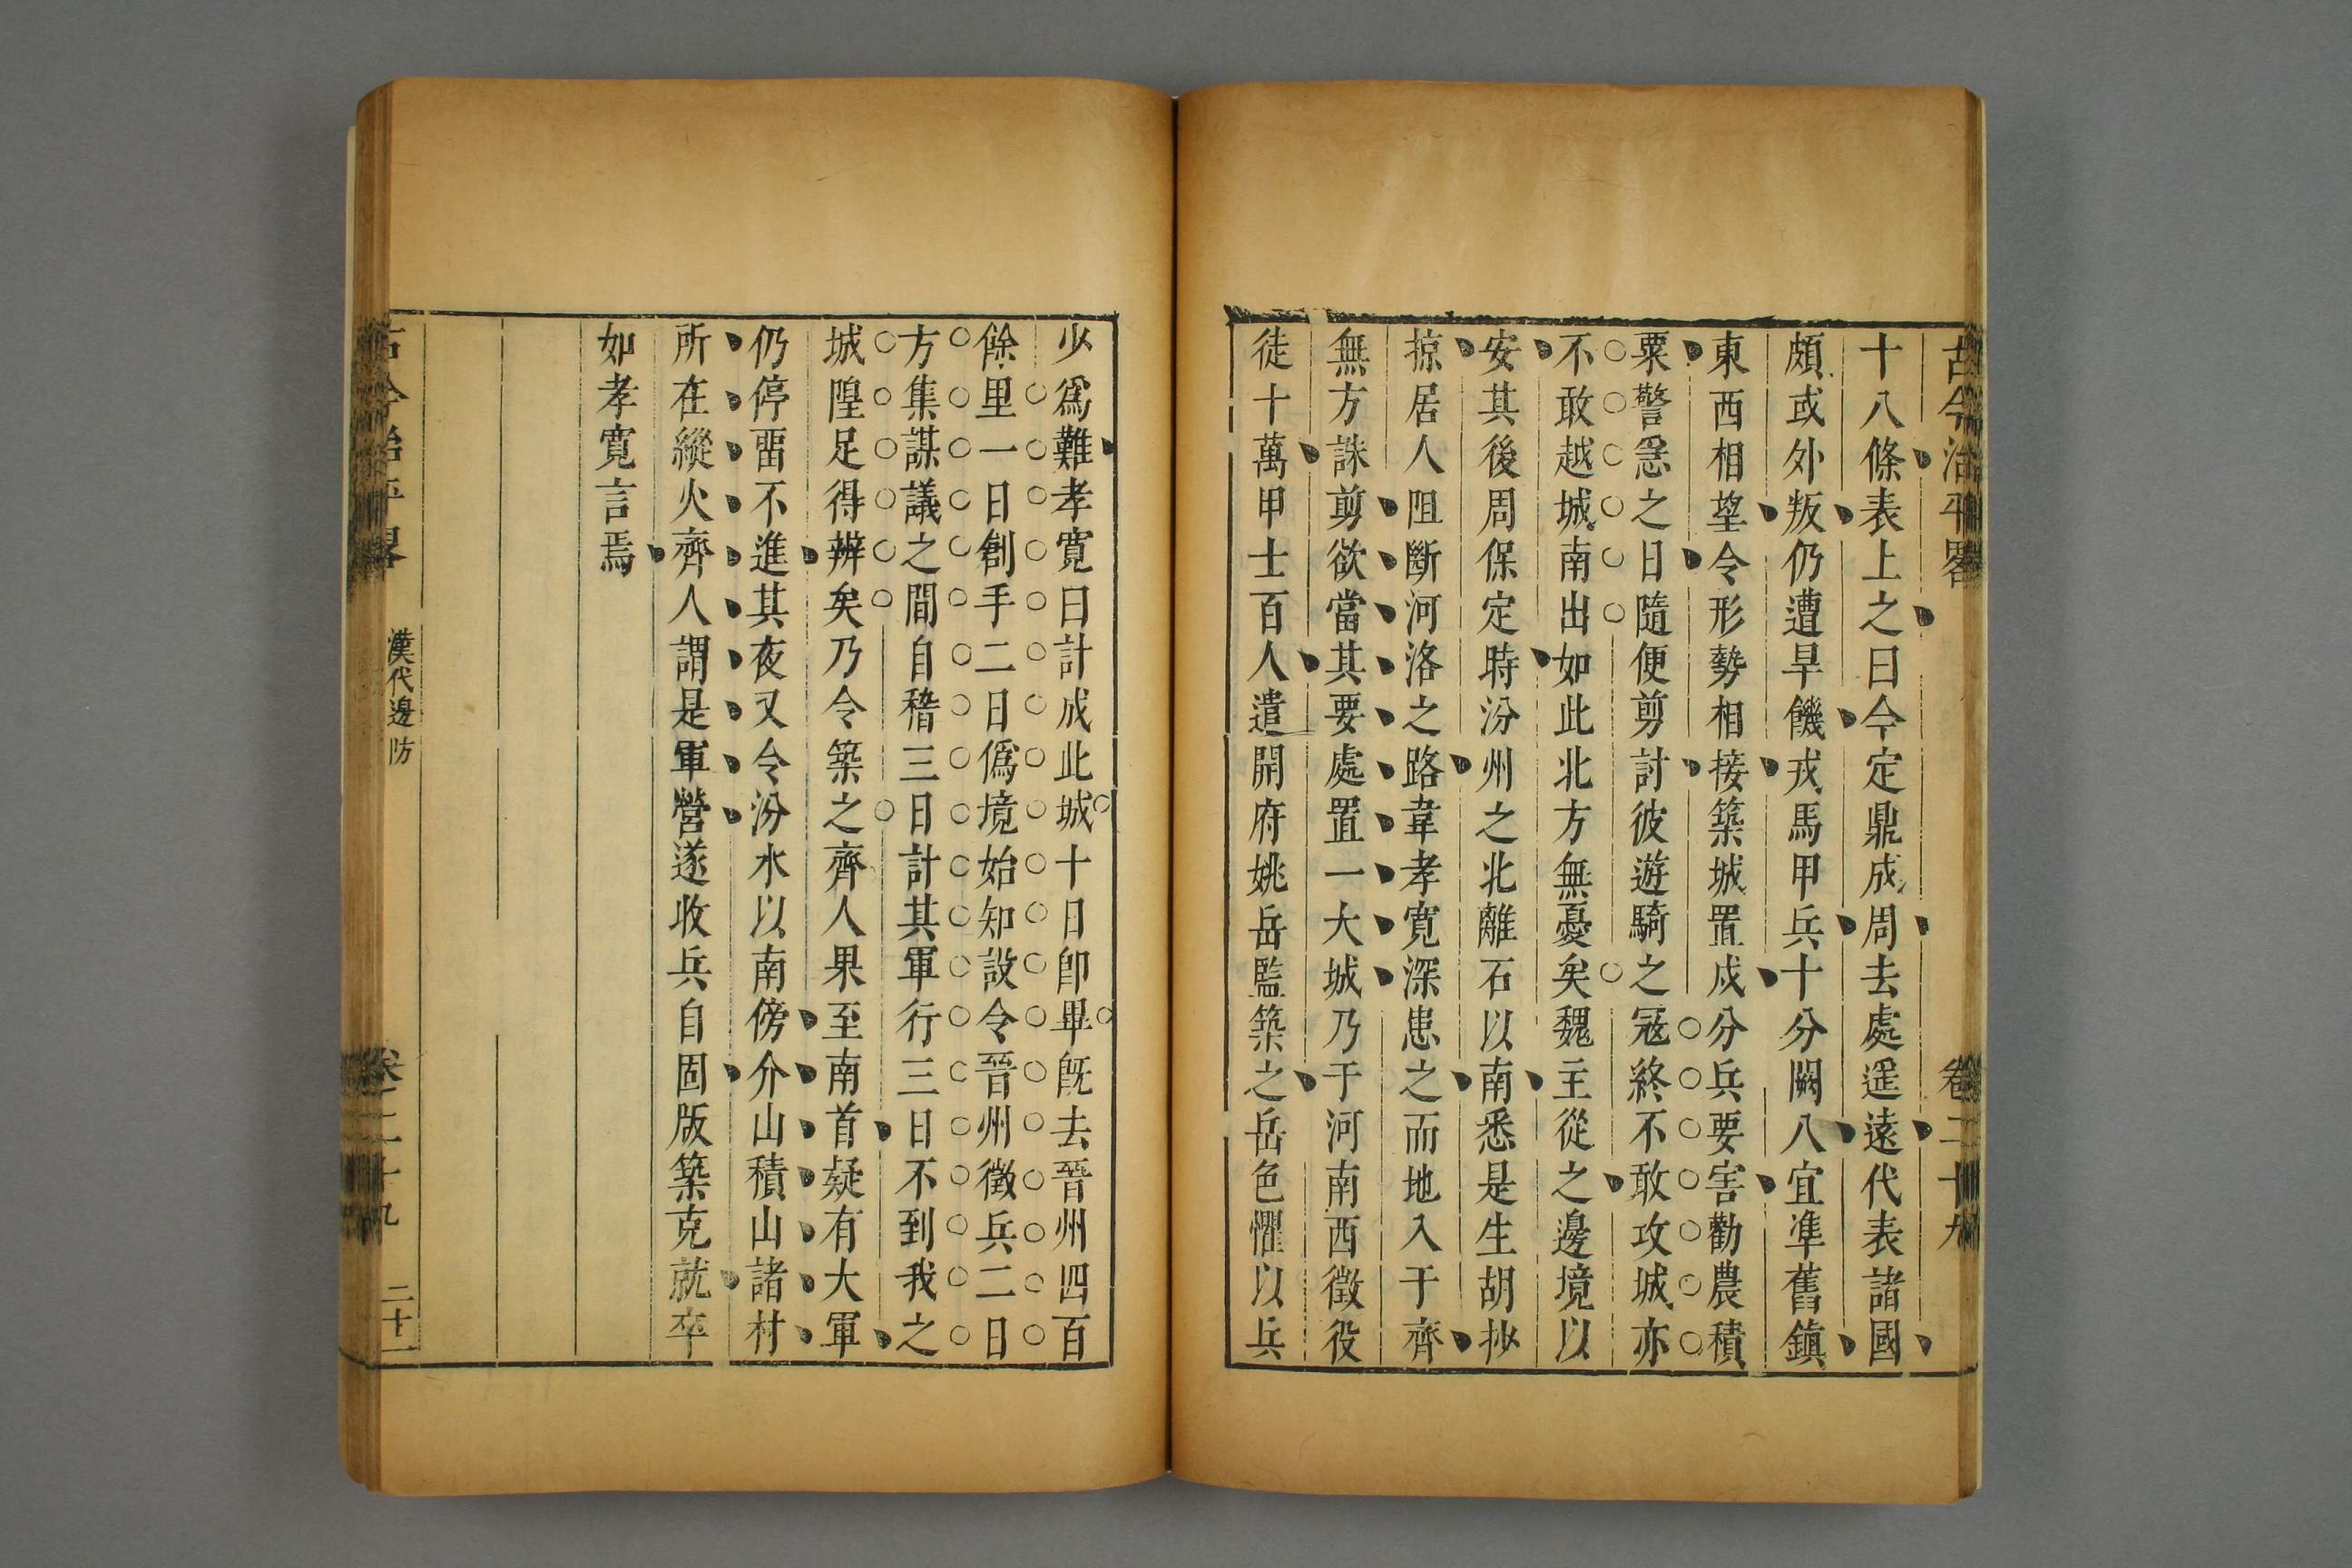 古今治平畧 卷二十九
十八條表上之曰今定鼎成周去處遥遠代表諸國
頗或外叛仍遭旱饑戎馬甲兵十分闕八宜準舊鎮
東西相望令形勢相接築城置戍分兵要害勸農積
粟警急之日隨便剪討彼遊騎之寇終不敢攻城亦
不敢越城南出如此北方無憂矣魏主從之邊境以
安其後周保定時汾州之北離石以南悉是生胡抄
掠居人阻斷河洛之路韋孝寛深患之而地入于齊
無方誅剪欲當其要處置一大城乃于河南西徵役
徒十萬甲士百人遣開府姚岳監築之岳色懼以兵
少爲難孝寛曰計成此城十日卽畢旣去晉州四百
餘里一日創手二日僞境始知設令晉州徵兵二日
方集謀議之間自稽三日計其軍行三日不到我之
城隍足得辨矣乃令築之齊人果至南首疑有大軍
仍停畱不進其夜又令汾水以南傍介山積山諸村
所在縱火齊人謂是軍營遂收兵自固版築克就卒
如孝寛言焉
古今治平畧 漢代邊防 卷二十九 二十一